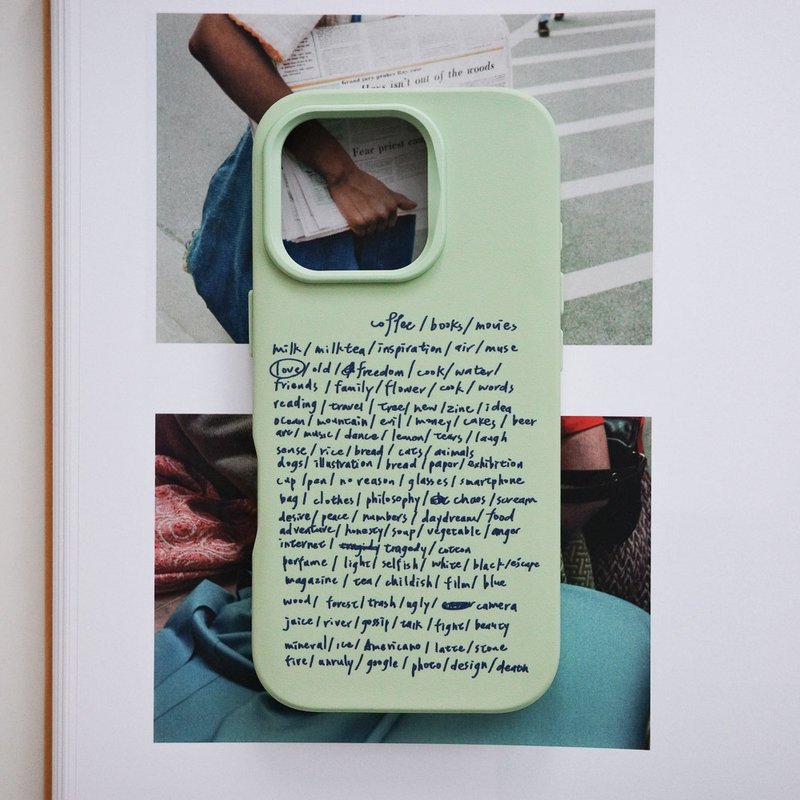 isn't out of the woods
Fear priest
coffee / books / movies
milk / milktea / inspiration / air / muse
love / old / freedom / cook / water /
friends / family / flower / cook / words
reading / travel / tree / new / zine / idea
ocean / mountain / evil / money / cakes / beer
art / music / dance / lemon / tears / laugh
sense / rice / bread / cats / animals
dogs / illustration / bread / paper / exhibition
cup / pen / no reason / glasses / smartphone
bag / clothes / philosophy / chaos / scream
desire / peace / numbers / daydream / food
adventure / honesty / soup / vegetable / anger
internet / tragedy / cotton
perfume / light / selfish / white / black / escape
magazine / tea / childish / film / blue
wood / forest / trash / ugly / camera
juice / river / gossip / talk / fight / beauty
mineral / ice / Americano / latte / stone
fire / unruly / google / photo / design / death